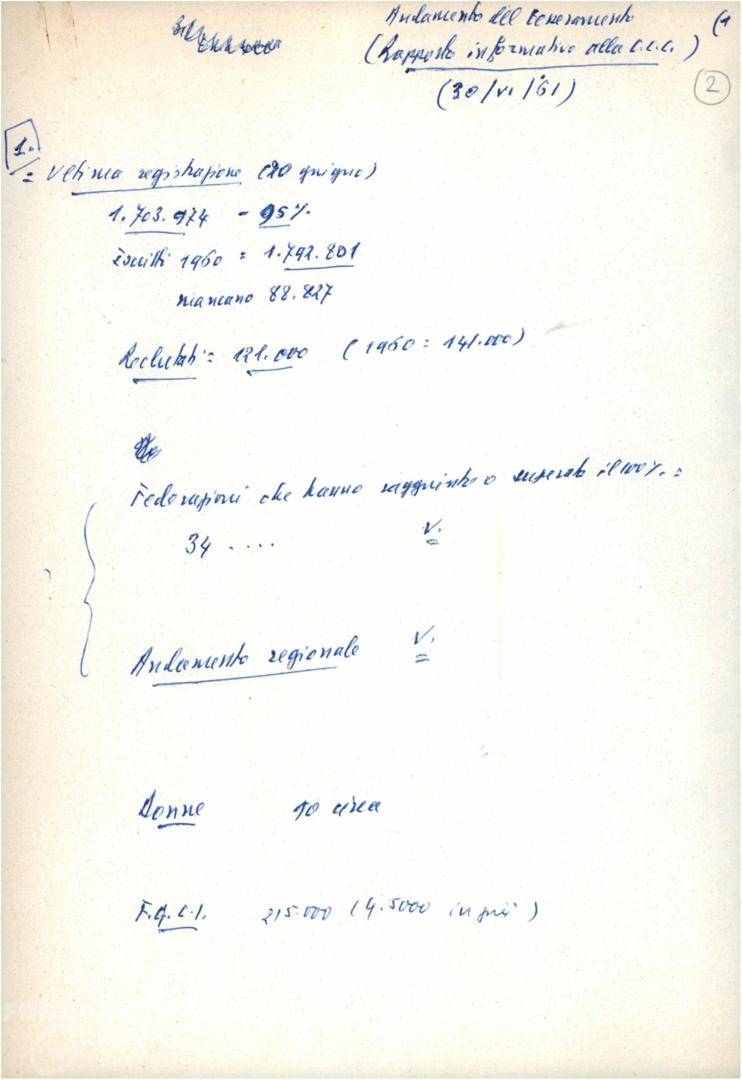 Andamento del tesseramento (1
(Rapporto informativo alla C.C.C.)
(30/VI/61)
2
1.
= Ultima registrazione (20 giugno)
1.703.974 - 95%
Iscritti 1960 = 1.792.801
mancano 88.827
Reclutati = 121.000 (1960 = 141.000)
Federazioni che hanno raggiunto o superato il 100% =
34 .... V.
Andamento regionale V.
Donne 10 circa
F.G.C.I. 215.000 (4.5000 in più)